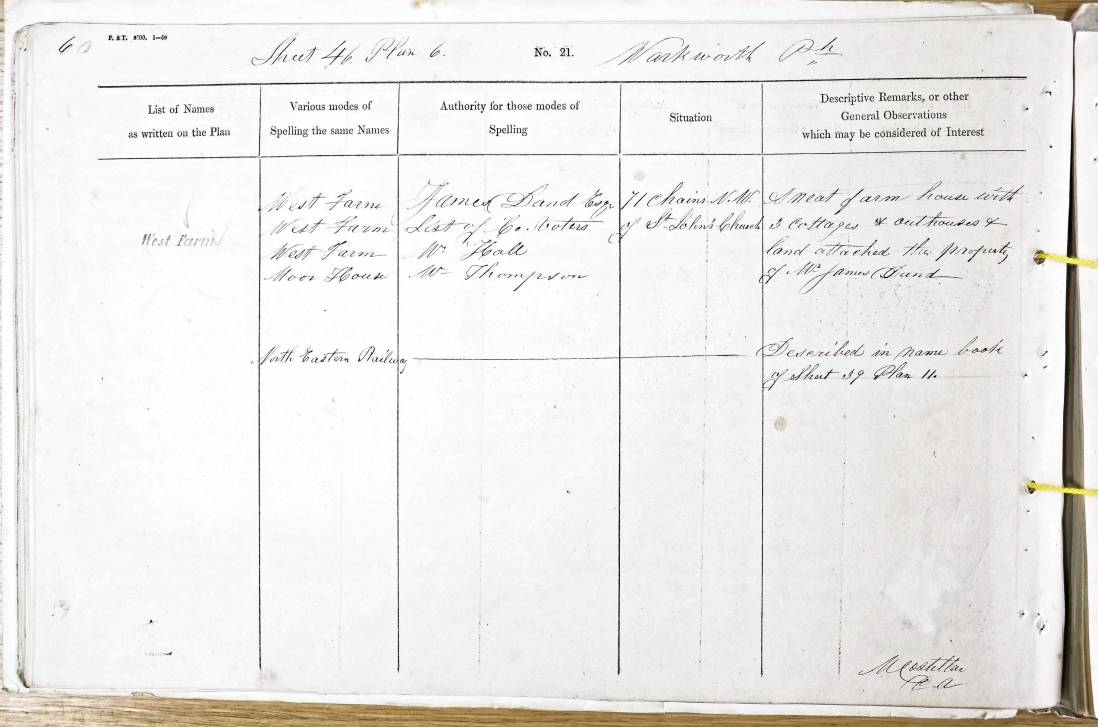 60
P. &T. 8000. 1–59
Sheet 46 Plan 6.
No. 21.
Warkworth Ph
List of Names
as written on the Plan
Various modes of
Spelling the same Names
Authority for those modes of
Spelling
Situation
Descriptive Remarks, or other
General Observations
which may be considered of Interest
West Farm
West Farm
West Farm
West Farm
Moor House
James Dand Esqr
List of Co. Voters
Mr Hall
Mr Thompson
71 chains N.W.
of St John's Church
A neat farm house with
3 cottages & outhouses &
land attached the property
of Mr James Dand
North Eastern Railway
Described in name book
of Sheet 39 Plan 11.